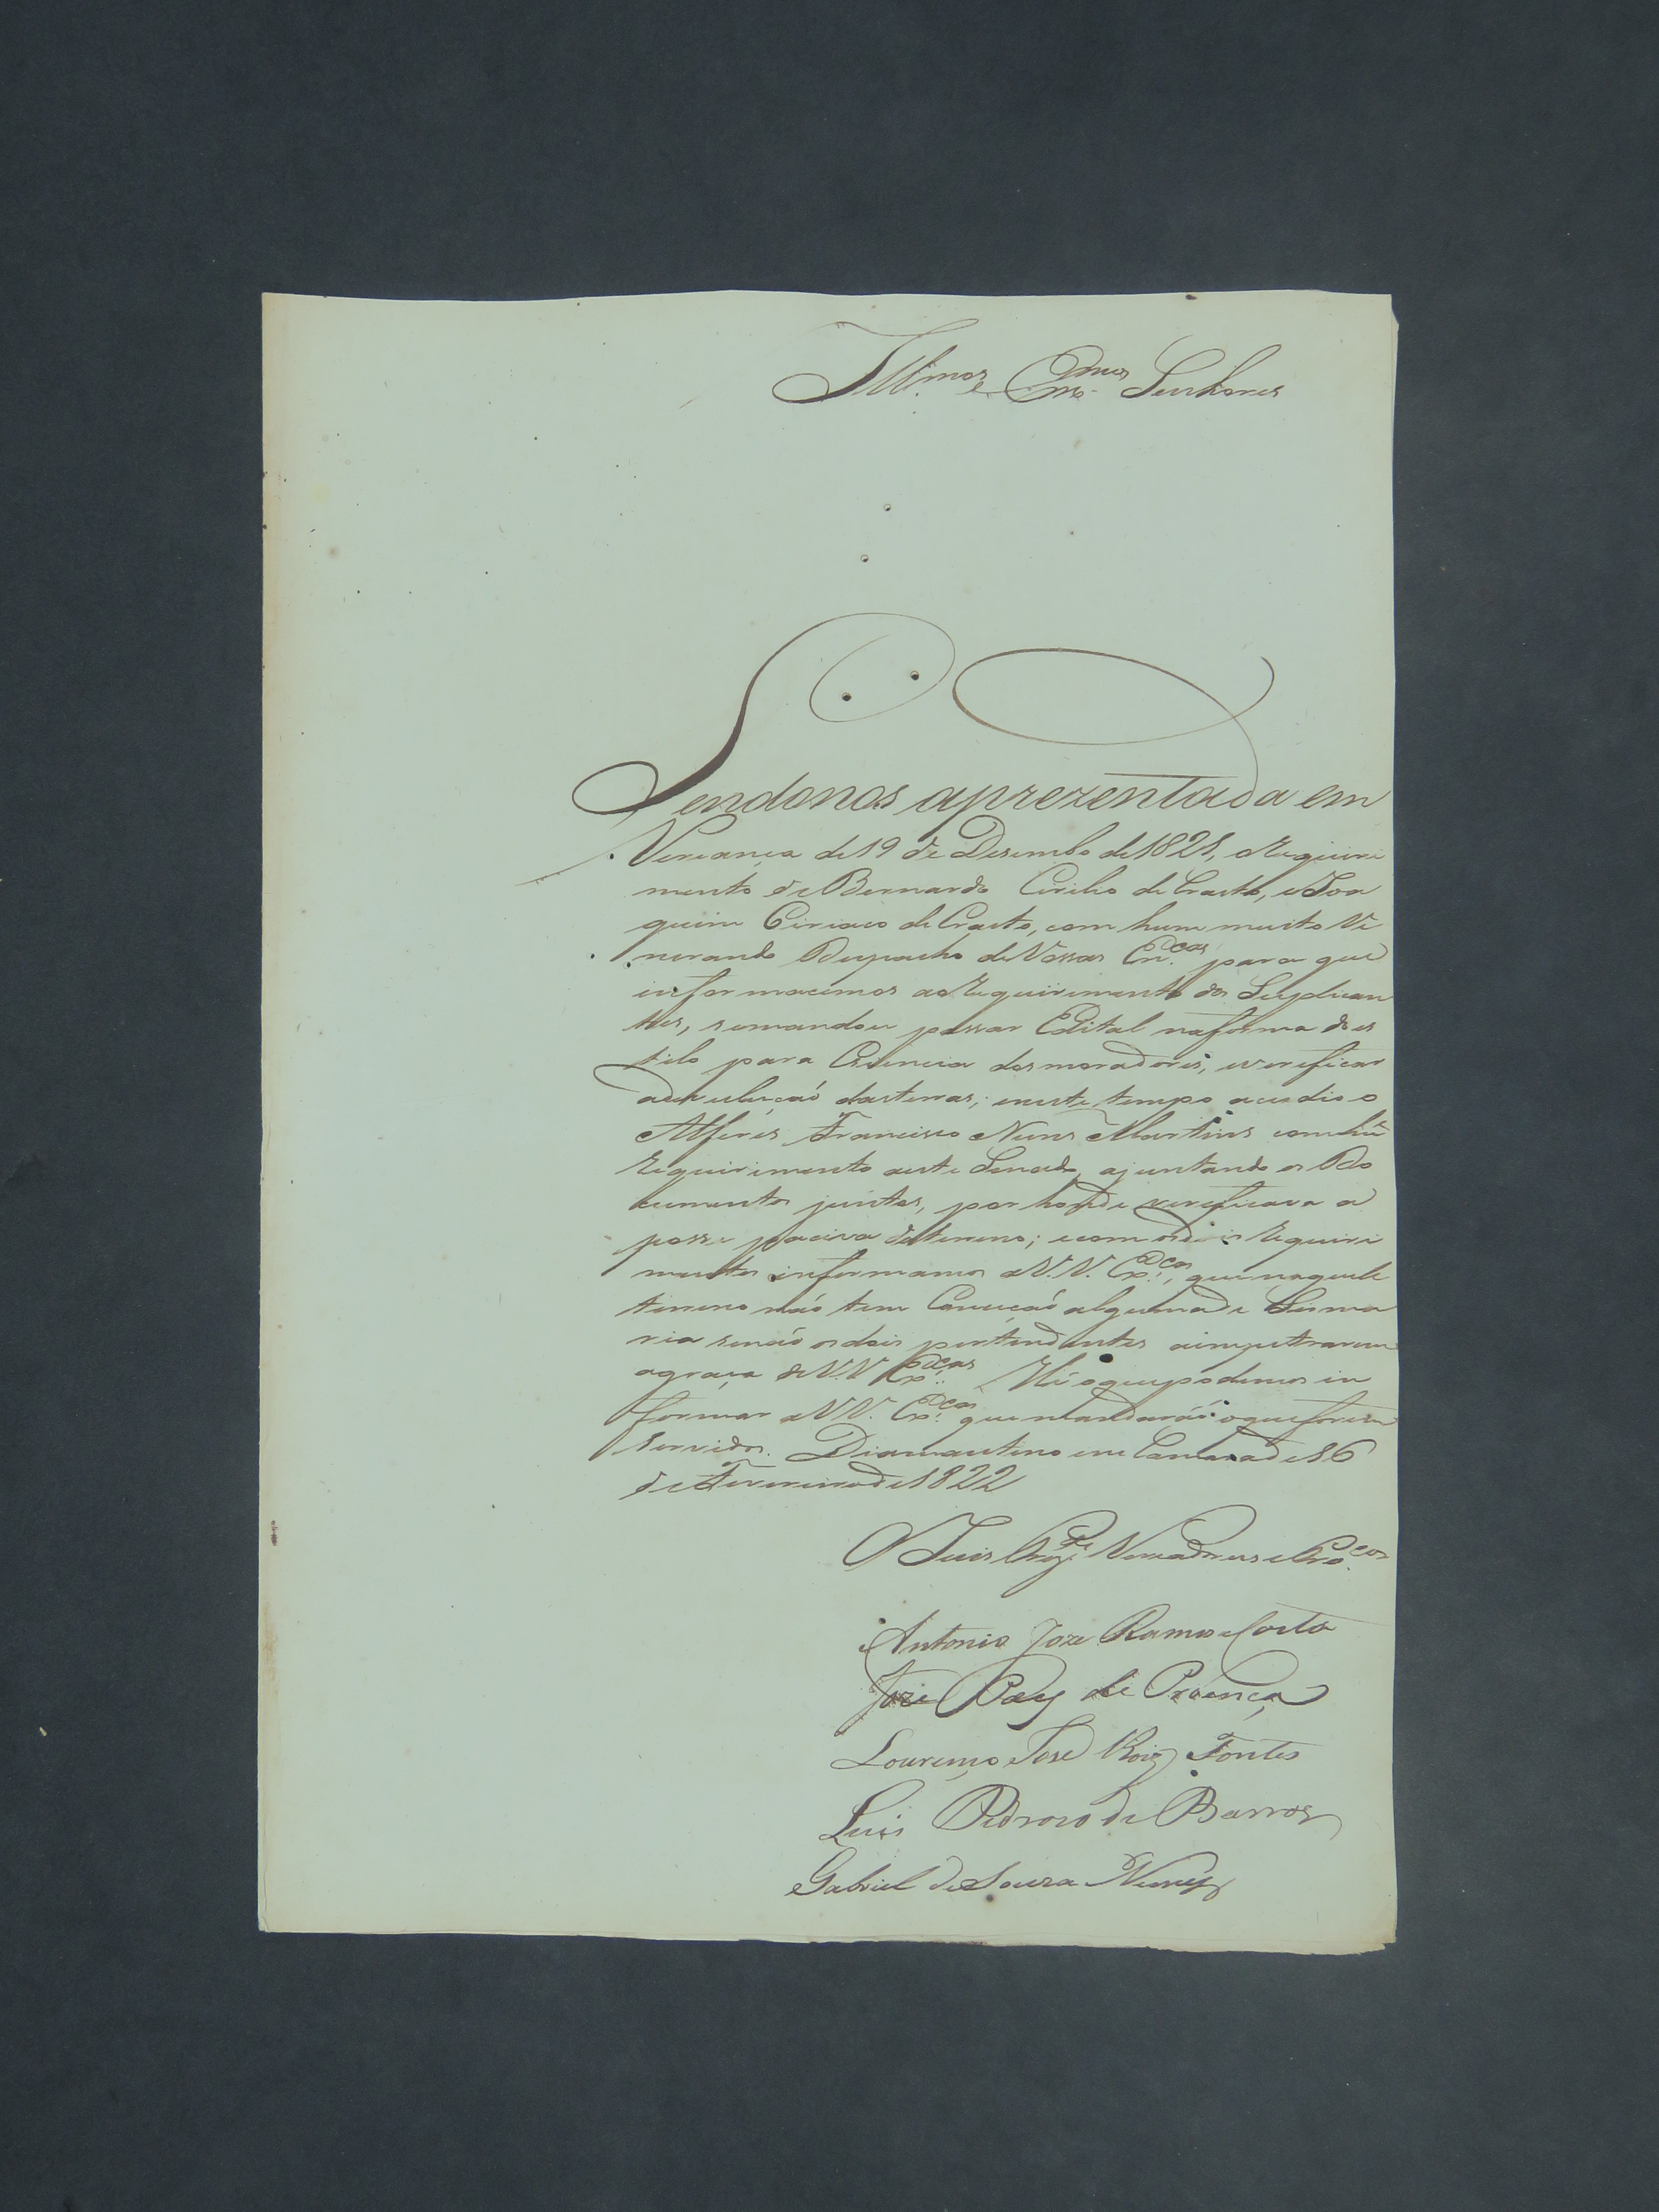 Ill.mos e Exmos Senhores
Sendonos aprezentada em
Vereança de 19 de Desembo de 1821, o Requiri
mento de Bernardo Cirilio de Crasto, e Joa
quim Ciriaco de Crasto, com hum muito Ve
nerando Despacho de Vossas Ex.cas para que
informacemos ao Requirimento dos Suplican
tes, semandou passar Edital naforma do es
tilo para Ciencia dos moradores, everificar
dasterras; eneste tempo acudio o
Alferes Francisco Nunes Martins com hũ
requirimento aeste Senado, ajuntando os Do
cumentos juntos, por honde verificava a
posse paciva doterreno; ecom os dois requiri
mentos informamos a V.V. Ex.cas, que naquele
terreno naõ tem Conceçaõ alguma de Sesma
ria senaõ os dois pertendentes aimpetrarem
agraça de V.V. Ex.cas He oque podemos in
formar a V.V. Ex.cas que mandaráõ o que forem
servidos. Diamantino em Camara de 16
de Fevereiro de 1822
O Juis Prez.e Vereadores e Pro.cor
Antonio Joze Ramos e Costa
Joze Paes de Proença
Lourenço Jose Roiz Fontes
Luis Pedrozo de Barros
Gabriel de Souza Neves